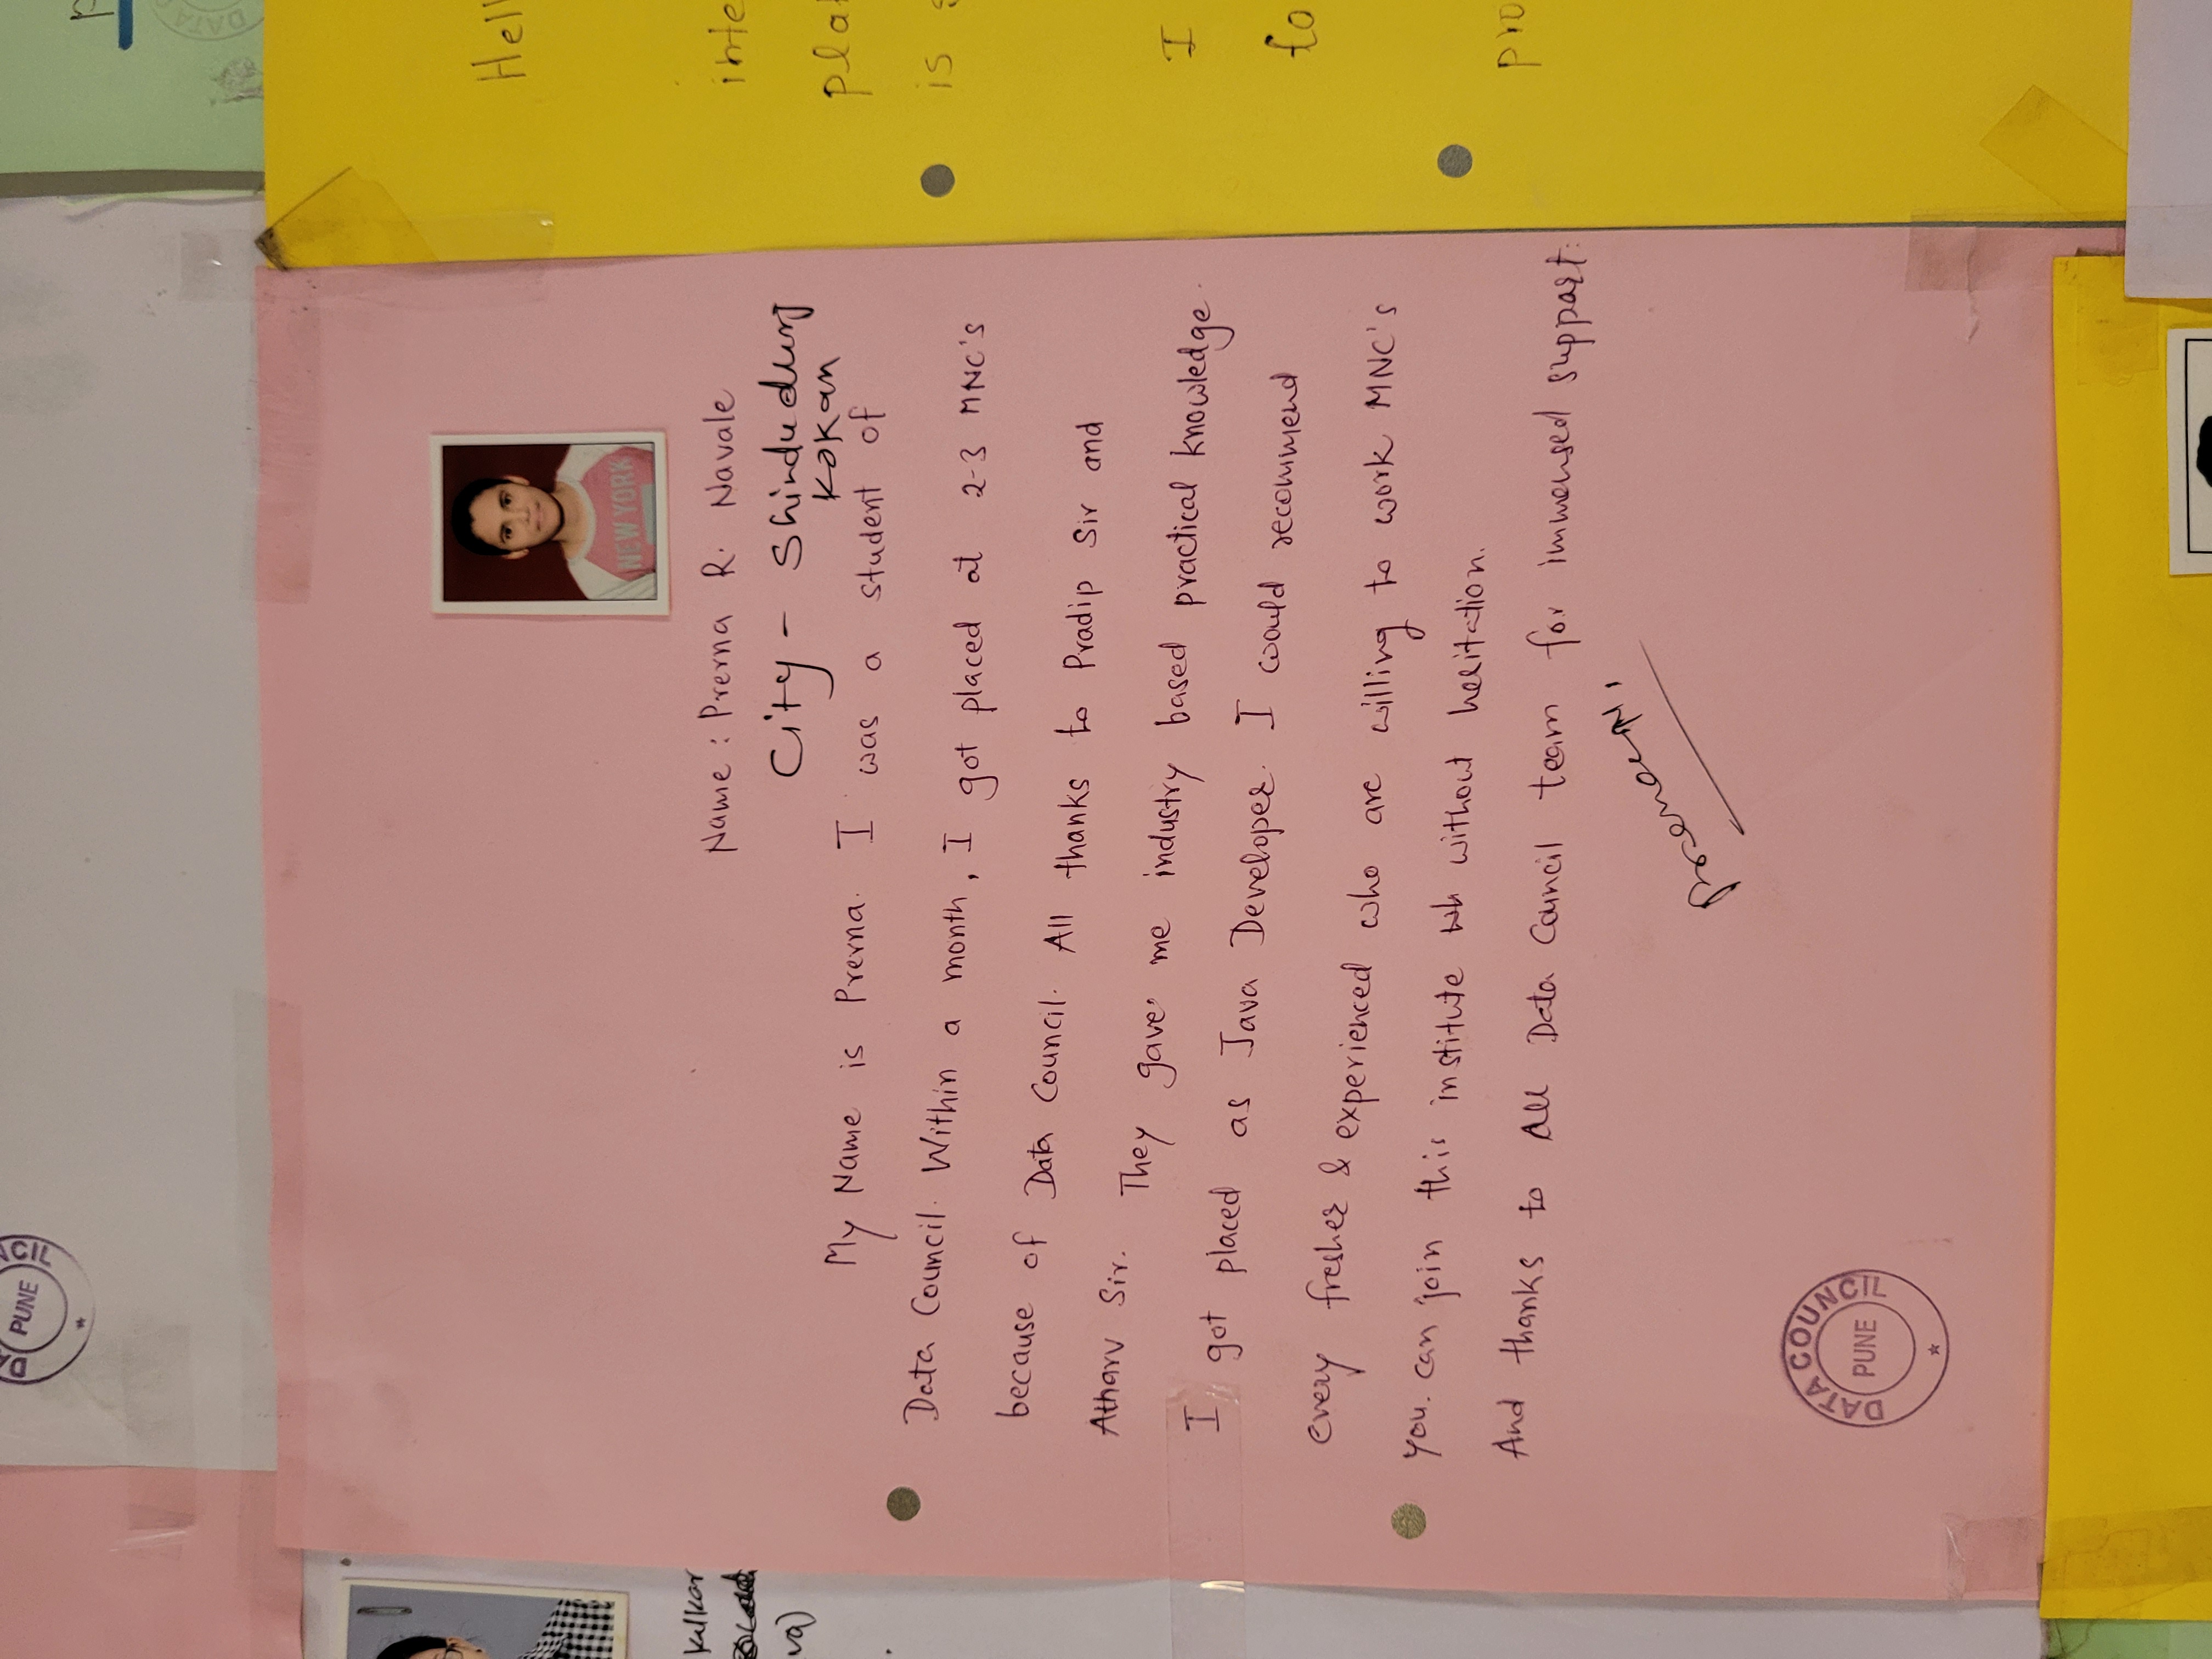 DATA COUNCIL
PUNE
NEW YORK
Name : Prerna R. Navale
City - Shindudurg
Kokan
My Name is Prerna. I was a student of
Data Council. Within a month, I got placed at 2-3 MNC's
because of Data Council. All thanks to Pradip Sir and
Atharv Sir. They gave me industry based practical knowledge.
I got placed as Java Developer. I would recommend
every fresher & experienced who are willing to work MNC's
you. can join this institute wh without hesitation.
And thanks to All Data Council team for immensed support.
DATA COUNCIL
PUNE
kulkar
va)
Hell
inte
pla
is
I
to
pro